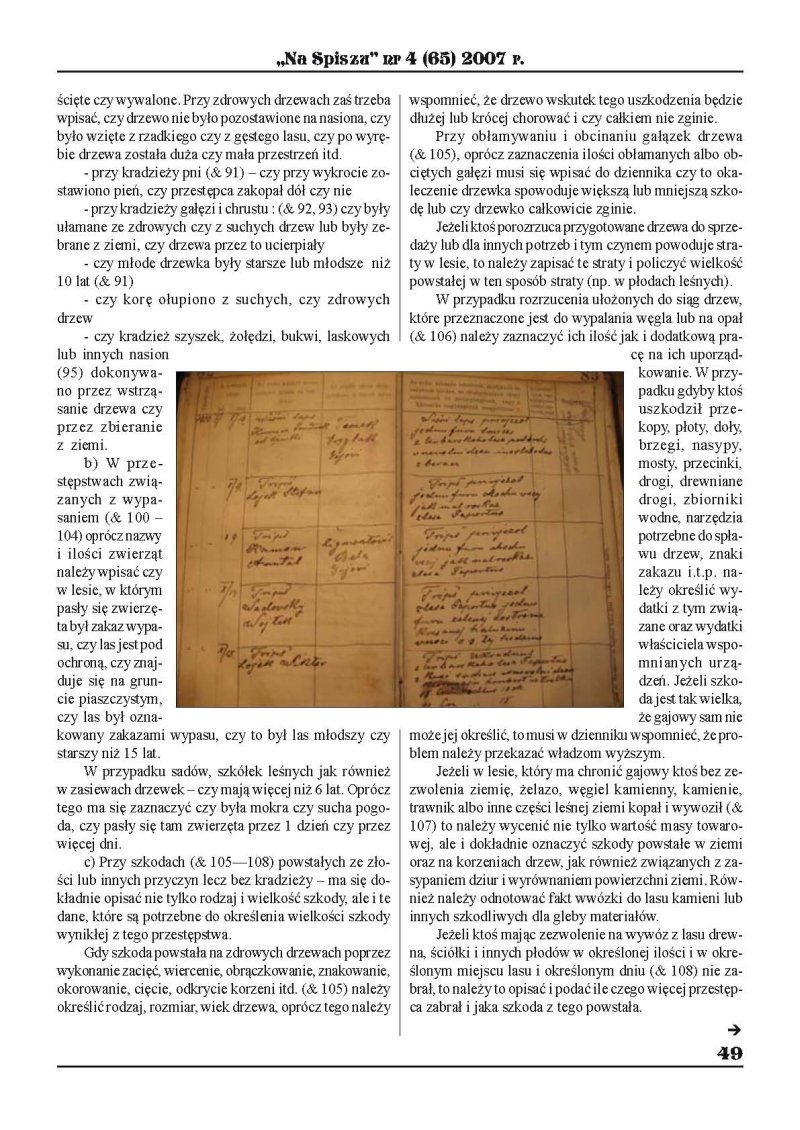 „Na Spiszu” nr 4 (65) 2007 r.
ścięte czy wywalone. Przy zdrowych drzewach zaś trzeba
wpisać, czy drzewo nie było pozostawione na nasiona, czy
było wzięte z rzadkiego czy z gęstego lasu, czy po wyrę-
bie drzewa została duża czy mała przestrzeń itd.
- przy kradzieży pni (& 91) – czy przy wykrocie zo-
stawiono pień, czy przestępca zakopał dół czy nie
- przy kradzieży gałęzi i chrustu : (& 92, 93) czy były
ułamane ze zdrowych czy z suchych drzew lub były ze-
brane z ziemi, czy drzewa przez to ucierpiały
- czy młode drzewka były starsze lub młodsze niż
10 lat (& 91)
- czy korę ołupiono z suchych, czy zdrowych
drzew
- czy kradzież szyszek, żołędzi, bukwi, laskowych
lub innych nasion
(95) dokonywa-
no przez wstrzą-
sanie drzewa czy
przez zbieranie
z ziemi.
b) W prze-
stępstwach zwią-
zanych z wypa-
saniem (& 100 –
104) oprócz nazwy
i ilości zwierząt
należy wpisać czy
w lesie, w którym
pasły się zwierzę-
ta był zakaz wypa-
su, czy las jest pod
ochroną, czy znaj-
duje się na grun-
cie piaszczystym,
czy las był ozna-
kowany zakazami wypasu, czy to był las młodszy czy
starszy niż 15 lat.
W przypadku sadów, szkółek leśnych jak również
w zasiewach drzewek – czy mają więcej niż 6 lat. Oprócz
tego ma się zaznaczyć czy była mokra czy sucha pogo-
da, czy pasły się tam zwierzęta przez 1 dzień czy przez
więcej dni.
c) Przy szkodach (& 105—108) powstałych ze zło-
ści lub innych przyczyn lecz bez kradzieży – ma się do-
kładnie opisać nie tylko rodzaj i wielkość szkody, ale i te
dane, które są potrzebne do określenia wielkości szkody
wynikłej z tego przestępstwa.
Gdy szkoda powstała na zdrowych drzewach poprzez
wykonanie zacięć, wiercenie, obrączkowanie, znakowanie,
okorowanie, cięcie, odkrycie korzeni itd. (& 105) należy
określić rodzaj, rozmiar, wiek drzewa, oprócz tego należy
wspomnieć, że drzewo wskutek tego uszkodzenia będzie
dłużej lub krócej chorować i czy całkiem nie zginie.
Przy obłamywaniu i obcinaniu gałązek drzewa
(& 105), oprócz zaznaczenia ilości obłamanych albo ob-
ciętych gałęzi musi się wpisać do dziennika czy to oka-
leczenie drzewka spowoduje większą lub mniejszą szko-
dę lub czy drzewko całkowicie zginie.
Jeżeli ktoś porozrzuca przygotowane drzewa do sprze-
daży lub dla innych potrzeb i tym czynem powoduje stra-
ty w lesie, to należy zapisać te straty i policzyć wielkość
powstałej w ten sposób straty (np. w płodach leśnych).
W przypadku rozrzucenia ułożonych do siąg drzew,
które przeznaczone jest do wypalania węgla lub na opał
(& 106) należy zaznaczyć ich ilość jak i dodatkową pra-
cę na ich uporząd-
kowanie. W przy-
padku gdyby ktoś
uszkodził prze-
kopy, płoty, doły,
brzegi, nasypy,
mosty, przecinki,
drogi, drewniane
drogi, zbiorniki
wodne, narzędzia
potrzebne do spła-
wu drzew, znaki
zakazu i.t.p. na-
leży określić wy-
datki z tym zwią-
zane oraz wydatki
właściciela wspo-
mnianych urzą-
dzeń. Jeżeli szko-
da jest tak wielka,
że gajowy sam nie
może jej określić, to musi w dzienniku wspomnieć, że pro-
blem należy przekazać władzom wyższym.
Jeżeli w lesie, który ma chronić gajowy ktoś bez ze-
zwolenia ziemię, żelazo, węgiel kamienny, kamienie,
trawnik albo inne części leśnej ziemi kopał i wywoził (&
107) to należy wycenić nie tylko wartość masy towaro-
wej, ale i dokładnie oznaczyć szkody powstałe w ziemi
oraz na korzeniach drzew, jak również związanych z za-
sypaniem dziur i wyrównaniem powierzchni ziemi. Rów-
nież należy odnotować fakt wwózki do lasu kamieni lub
innych szkodliwych dla gleby materiałów.
Jeżeli ktoś mając zezwolenie na wywóz z lasu drew-
na, ściółki i innych płodów w określonej ilości i w okre-
ślonym miejscu lasu i określonym dniu (& 108) nie za-
brał, to należy to opisać i podać ile czego więcej przestęp-
ca zabrał i jaka szkoda z tego powstała.
➔
49